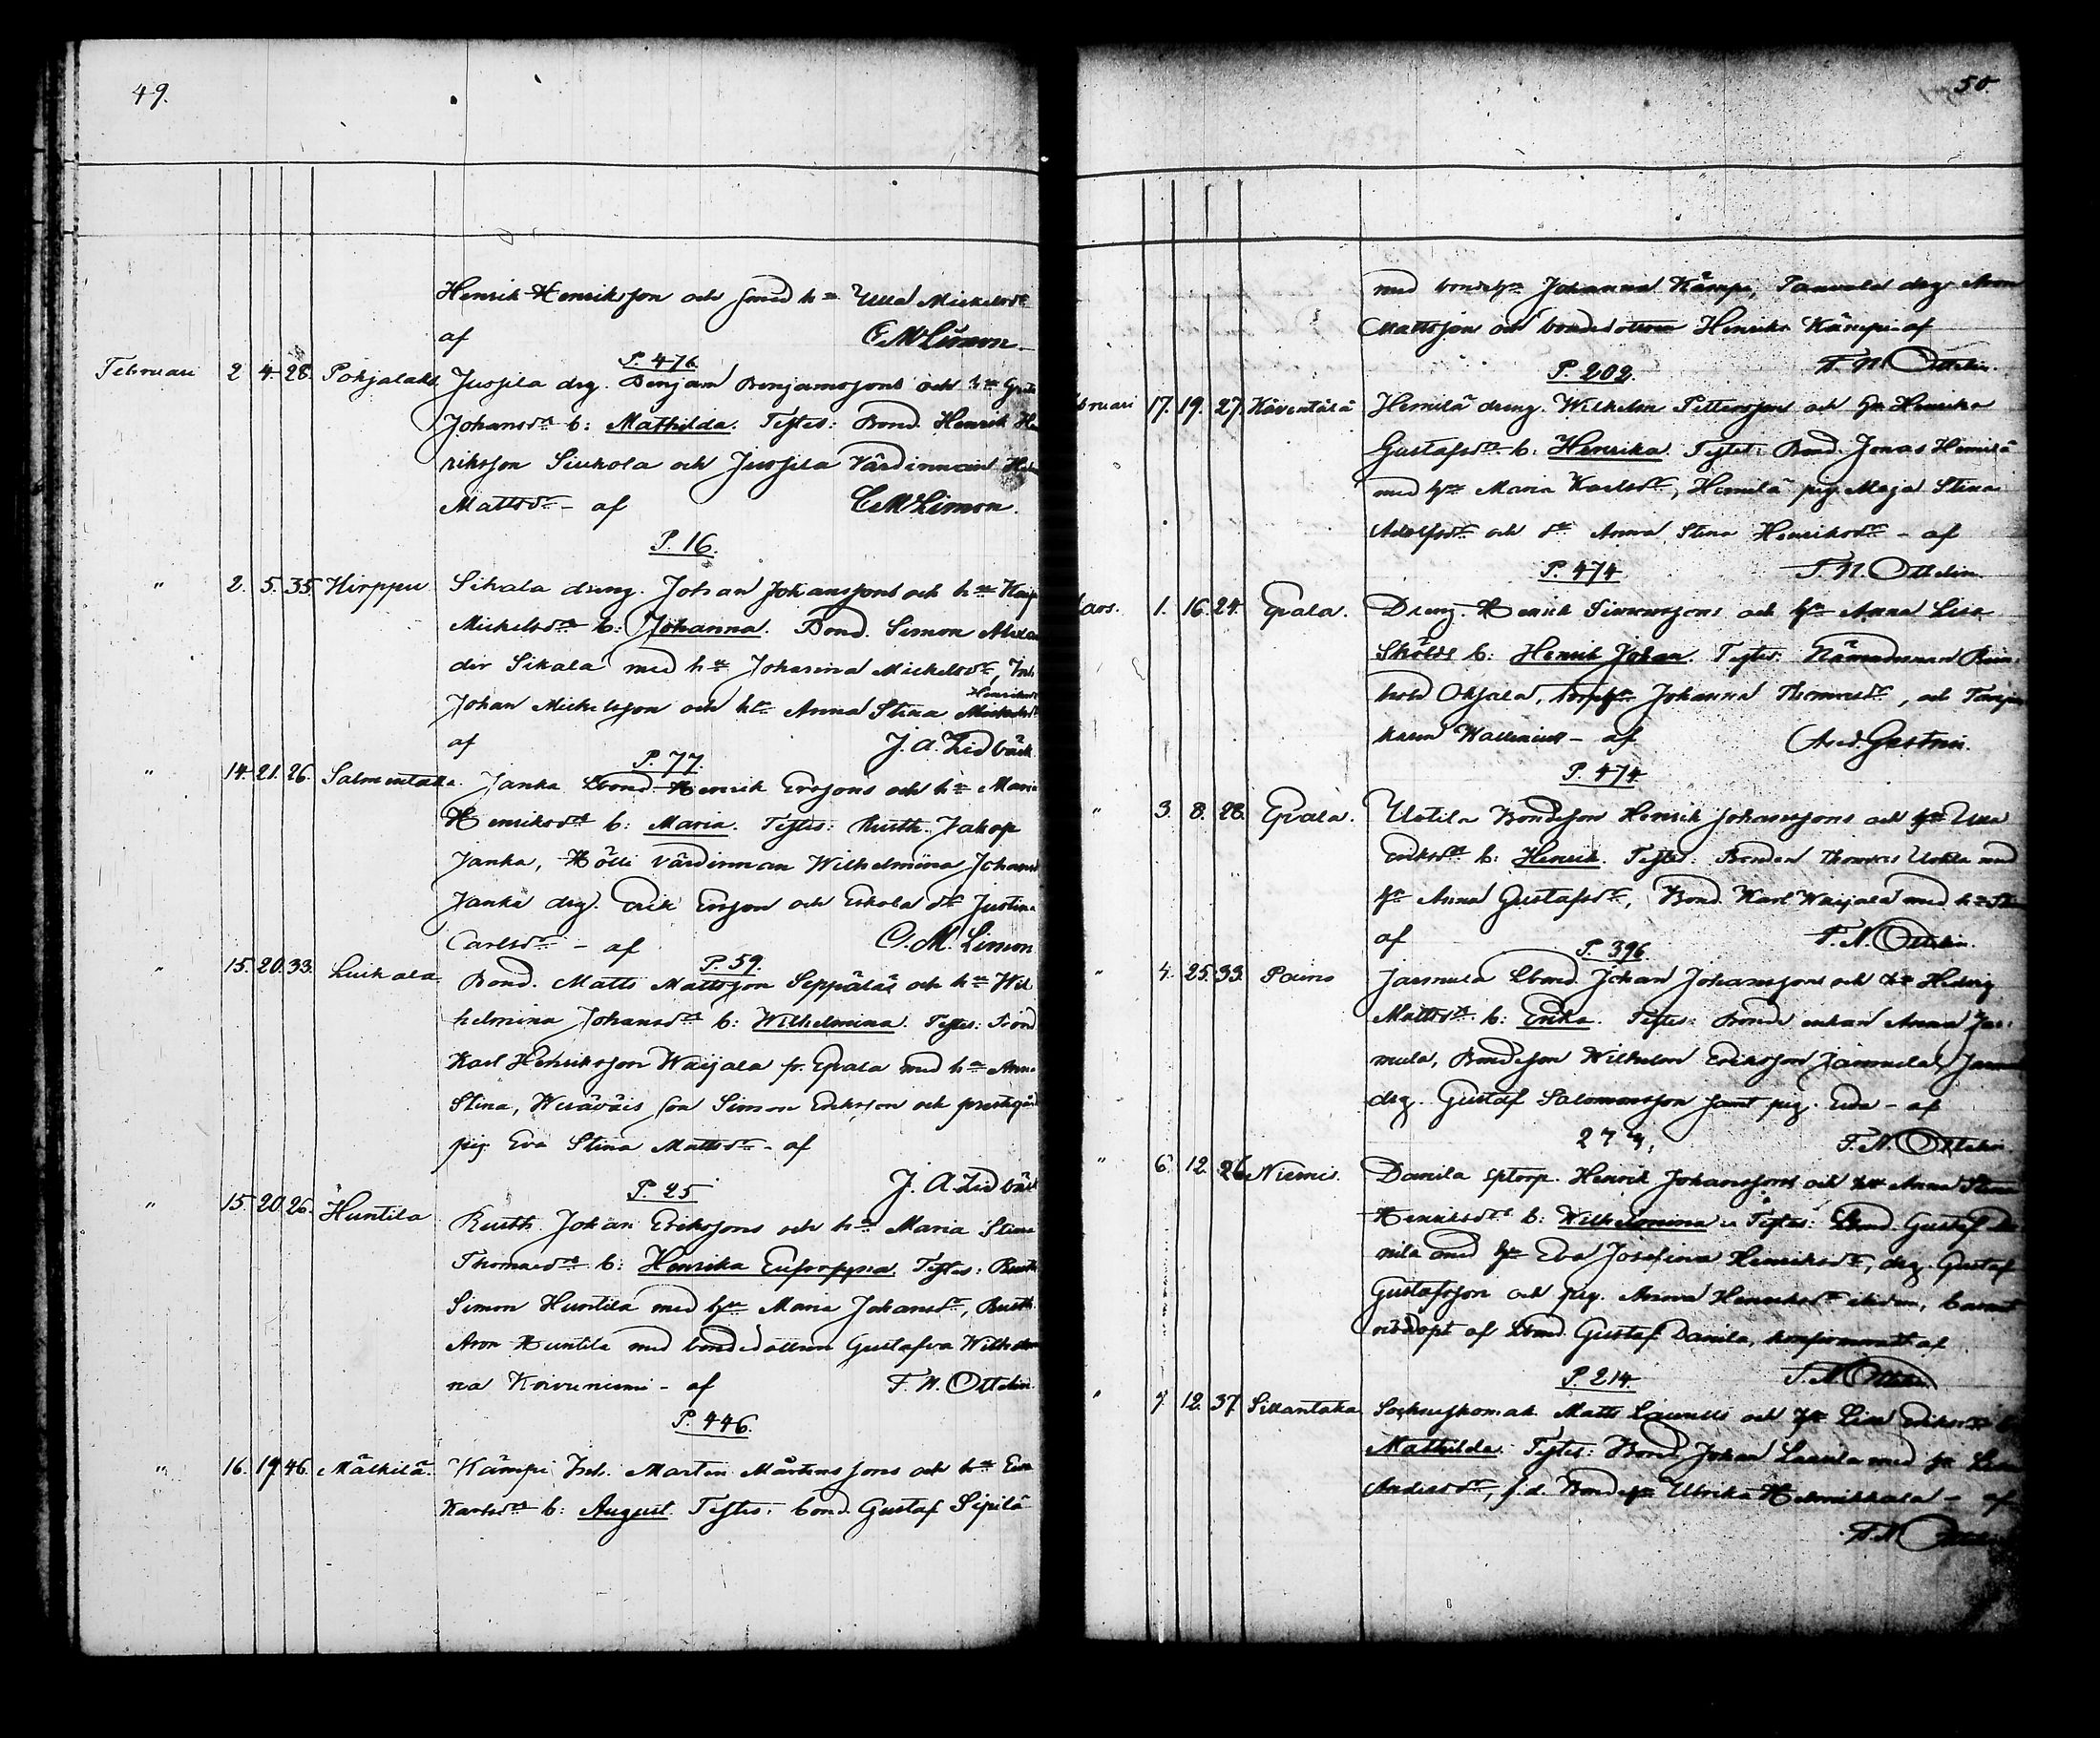 49.
Henrik Henriksson och soned h:u Ulla Mickelsdr
af C M Limon
P. 476
Februari 2 4 28. Pohjalaks Jussila drg. Benjam Benjamssons och h:u Greta
Johansdrs b: Mathilda. Testes: Bond. Henrik Hen
riksson Siukola och Jussila Värdinnan
Mattsdr - af C M Limon.
P. 16.
" 2. 5. 35 Hirppu Sikala dreng. Johan Johanssons och h:u Kajs
Mickelsdrs b: Johanna. Bond. Simon Alexan
der Sikala med h:u Johanna Mickelsdr, Inh.
Johan Mickelsson och h:u Anna Stina Mickelsdr Henriksdr
af J. A. Lidbäck
P. 77.
" 14. 21. 26. Salmentaka. Janka Lbond Henrik Erssons och h:u Maria
Henriksdrs b: Maria. Testes: Rusth. Jakop
Janka, Hölli värdinnan Wilhelmina Johansd
Janka drg. Erik Ersson och Eskola dr Justina
Carlsdr - af C. M. Limon
P. 59.
" 15. 20. 33. Liuk ala Bond. Matts Mattsson Seppäläs och h:u Wil
helmina Johansdrs b: Wilhelmina. Testes: Bond
Karl Henriksson Waijala fr. Epala med h:u Anna
Stina, Weräväis son Simon Eriksson och prestgård
pig Eva Stina Mattsdr - af
J. A. Lidbäck
P. 25
" 15 20 26. Huntila Rusth. Johan Erikssons och h:u Maria Stina
Thomasdrs b: Henrika Eufrosyna. Testes: Rusth
Simon Huntila med h:u Maria Johansdr, Rusth.
Aron Huntila med bondedottren Gustafva Wilhelmi
na Koivuniemi - af F. N. Ottelin.
P. 446.
" 16. 19. 46. Mälkilä. Kämpi Inh. Morten Mårtenssons och h:u Eva
Karlsdrs b: August. Testes: bond Gustaf Sipilä
50
med bondeh:u Johanna Kämpi, Panvola drg. Aron
Mattsson och bondedottren Henrika Kämpi - af
P. 202. F. N. Ottelin.
bruari 17. 19. 27. Käventälä Hemilä dreng. Wilhelm Petterssons och h:u Henrika
Gustafsdrs b: Henrika. Testes: Bond. Jonas Hemilä
med h:u Maria Karlsdr, Hemilä pig. Maja Stina
Adolfsdr och dr Anna Stina Henriksdr - af
P. 474 F. N. Ottelin.
ars. 1. 16. 24. Epala. Dreng. Henrik Simonssons och h:u Anna Lisa
Skölds b: Henrik Johan. Testes: Nämndeman Rein
hold Ohjala, torph:u Johanna Thomasdr, och Torpar
karen Wallenius - af And. Gestrin.
P. 474
" 3. 8. 28. Epala. Uotila Bondeson Henrik Johanssons och h:u Ulla
Eriksdrs b: Henrik. Testes: Bonden Thomas Uotila med
h:u Anna Gustafsdr, Bond. Karl Waijala med h:u
af F. N. Ottelin.
P. 396
" 4. 25. 33. Paino Jasmula Lbond. Johan Johanssons och h:u Hedvig
Mattsdrs b: Erika. Testes: Bonde enkan Anna Jas:
mula, Bondeson Wilhelm Eriksson Jasmula, Jasm
drg. Gustaf Salomonsson samt pig. Eva - af
274, F. N. Ottelin
" 6. 12. 26 Niemis. Danila sptorp. Henrik Johanssons och h:u Anna Stina
Henriksdrs b: Wilhelmina. Testes: Lbond. Gustaf Da
nila med h:u Eva Josefina Henriksdr, drg. Gustaf
Gustafsson och pig. Anna Henriksdr ibidem, barnet
nöddöpt af Lbond. Gustaf Danila, konfirmeradt af
P. 214. F. N. Ottelin
" 7. 12. 37. Sillantaka Sockneskomak. Matts Laurells och h:u Lisa Eriksdrs b:
Mathilda. Testes: Bond. Johan Laurila med h:u
Andersdr, f.d. Bondeh:u Ulrika - af
F. N. Ottelin